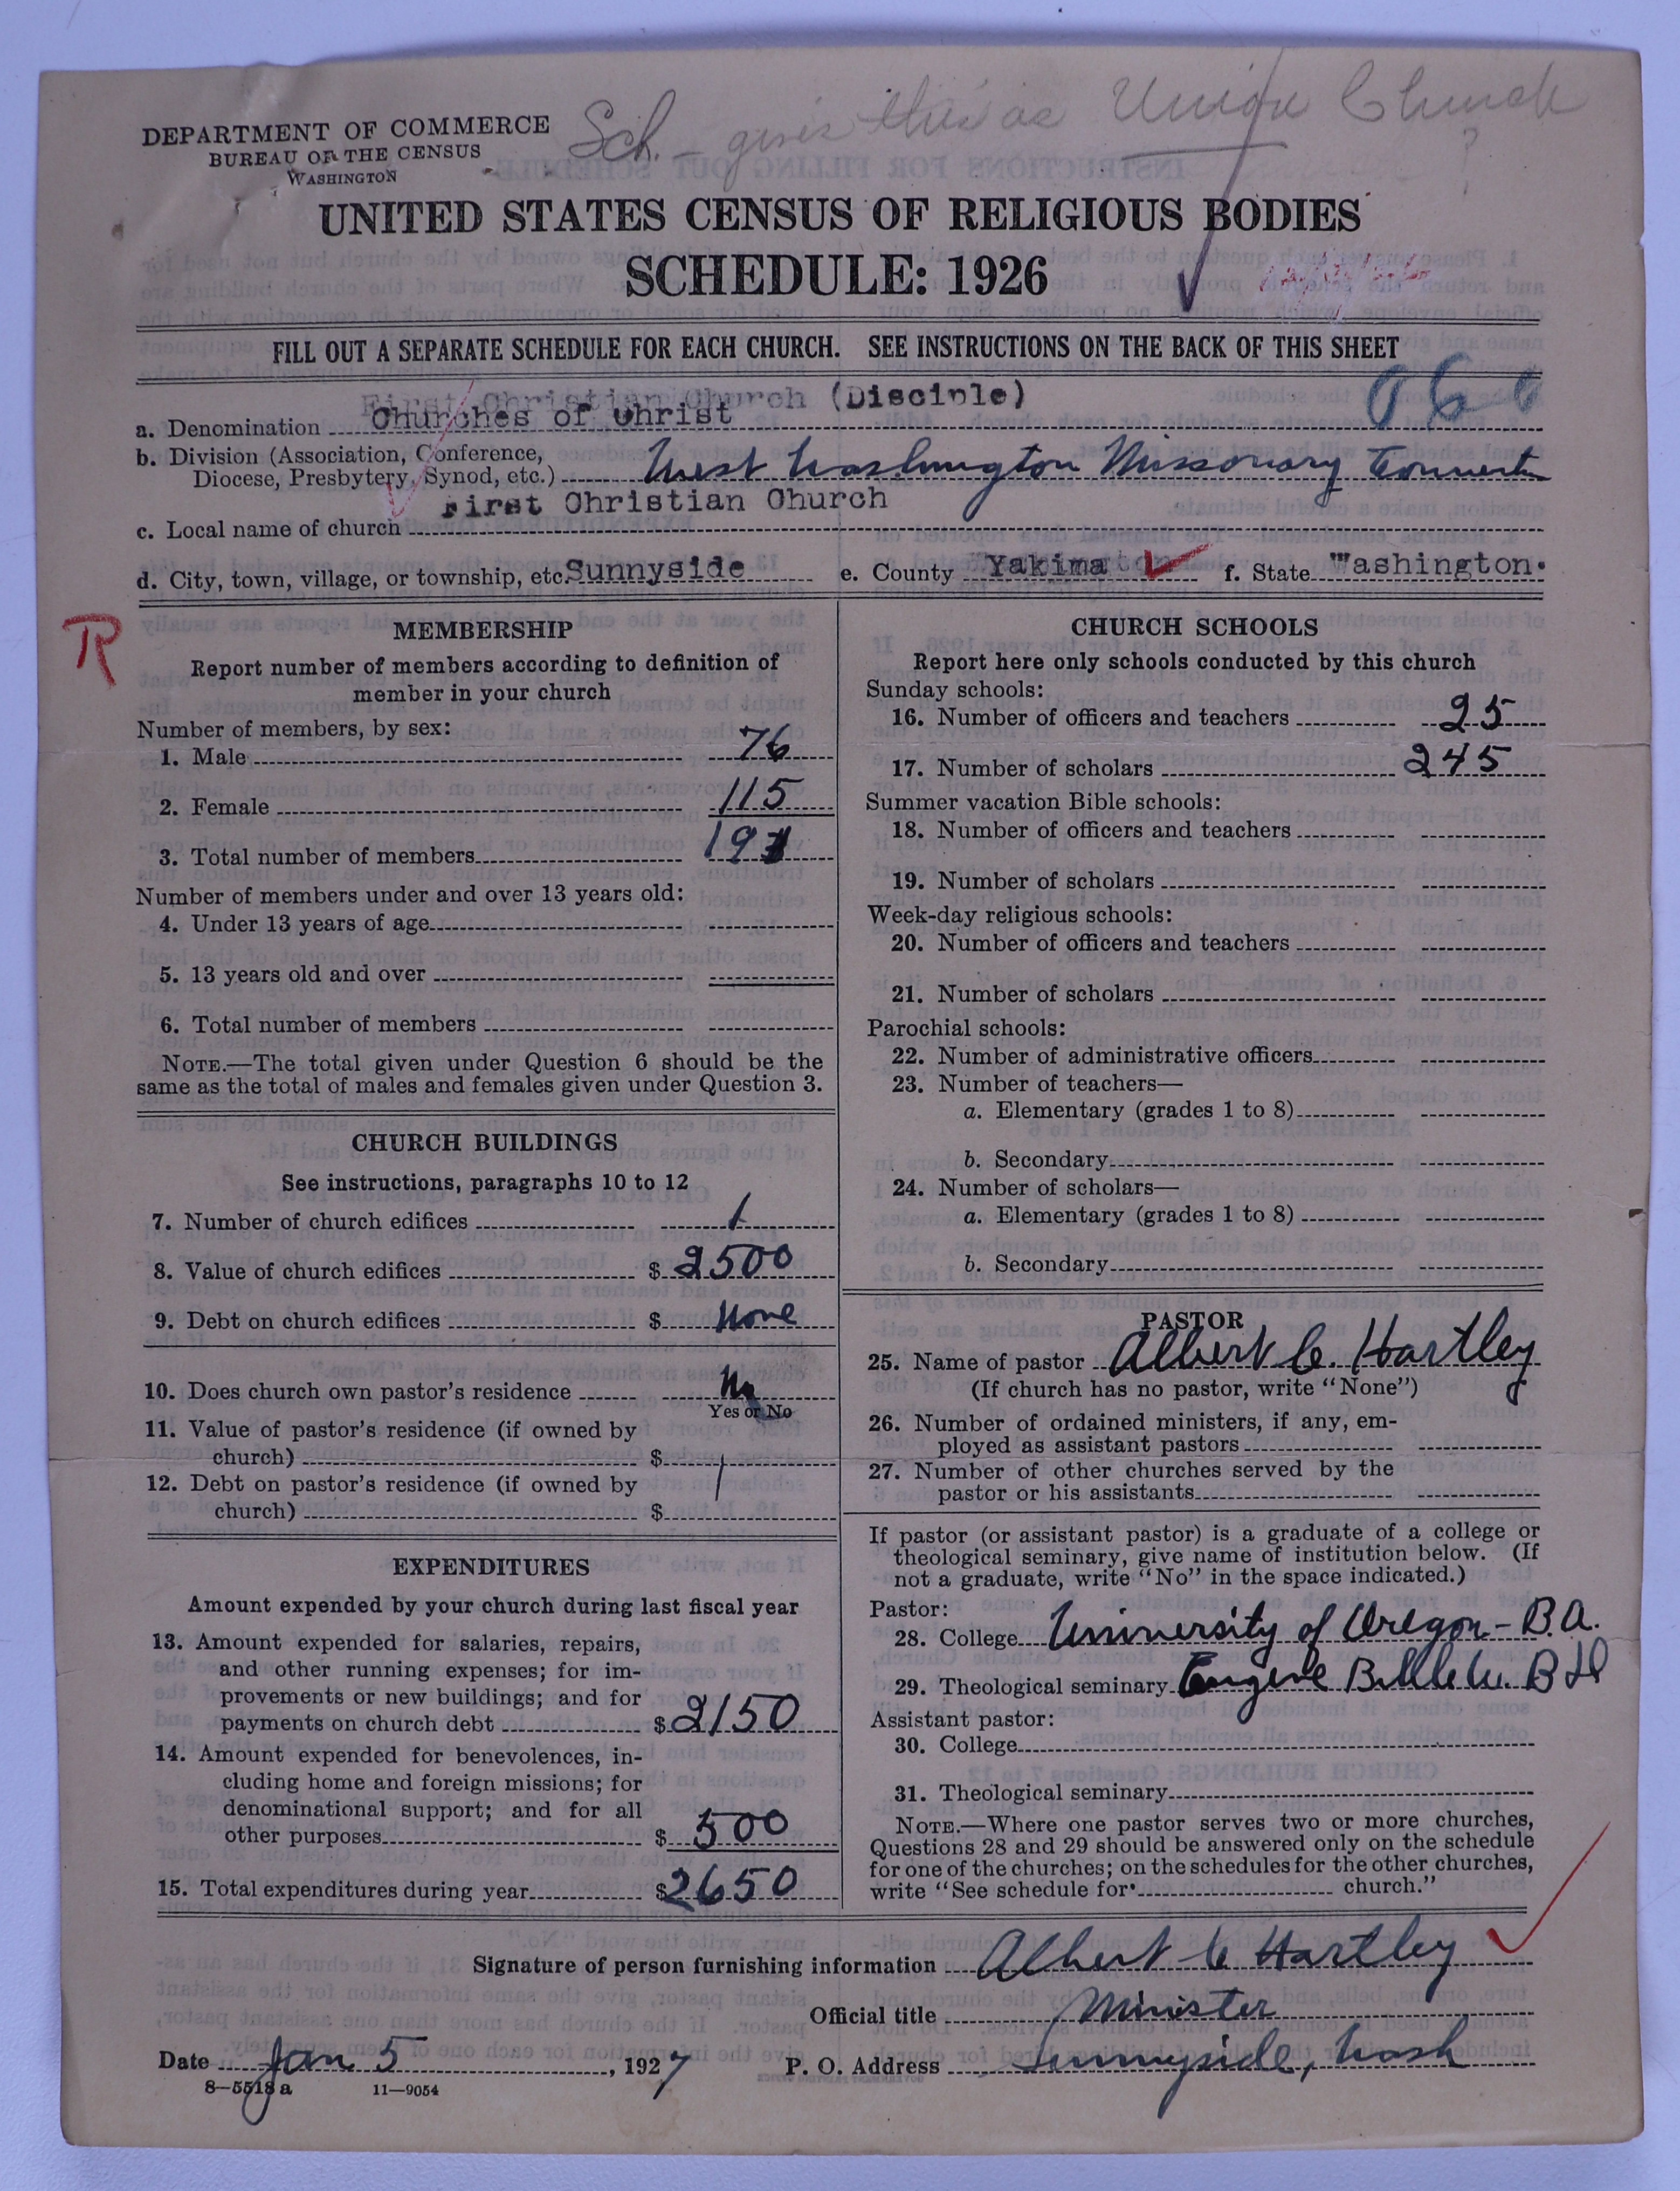 Sch. – gives this as Union Church
?
DEPARTMENT OF COMMERCE
BUREAU OF THE CENSUS
WASHINGTON
UNITED STATES CENSUS OF RELIGIOUS BODIES
SCHEDULE: 1926
FILL OUT A SEPARATE SCHEDULE FOR EACH CHURCH. SEE INSTRUCTIONS ON THE BACK OF THIS SHEET
First Christian Church (Disciple)
a. Denomination Churches of Christ
b. Division (Association, Conference,
Diocese, Presbytery, Synod, etc.) West Washington Missionary Convent
c. Local name of church First Christian Church
d. City, town, village, or township, etc. Sunnyside e. County Yakima f. State Washington.
R
MEMBERSHIP
Report number of members according to definition of
member in your church
Number of members, by sex:
1. Male 76
2. Female 115
3. Total number of members 191
Number of members under and over 13 years old:
4. Under 13 years of age
5. 13 years old and over
6. Total number of members
NOTE.—The total given under Question 6 should be the
same as the total of males and females given under Question 3.
CHURCH BUILDINGS
See instructions, paragraphs 10 to 12
7. Number of church edifices 1
8. Value of church edifices $ 2500
9. Debt on church edifices $ None
10. Does church own pastor's residence No
Yes or No
11. Value of pastor's residence (if owned by
church) $
12. Debt on pastor's residence (if owned by
church) $
EXPENDITURES
Amount expended by your church during last fiscal year
13. Amount expended for salaries, repairs,
and other running expenses; for im-
provements or new buildings; and for
payments on church debt $ 2150
14. Amount expended for benevolences, in-
cluding home and foreign missions; for
denominational support; and for all
other purposes $ 500
15. Total expenditures during year $ 2650
CHURCH SCHOOLS
Report here only schools conducted by this church
Sunday schools:
16. Number of officers and teachers 25
17. Number of scholars 245
Summer vacation Bible schools:
18. Number of officers and teachers
19. Number of scholars
Week-day religious schools:
20. Number of officers and teachers
21. Number of scholars
Parochial schools:
22. Number of administrative officers
23. Number of teachers—
a. Elementary (grades 1 to 8)
b. Secondary
24. Number of scholars—
a. Elementary (grades 1 to 8)
b. Secondary
PASTOR
25. Name of pastor Albert C. Hartley
(If church has no pastor, write "None")
26. Number of ordained ministers, if any, em-
ployed as assistant pastors
27. Number of other churches served by the
pastor or his assistants
If pastor (or assistant pastor) is a graduate of a college or
theological seminary, give name of institution below. (If
not a graduate, write "No" in the space indicated.)
Pastor:
28. College University of Oregon – B.A.
29. Theological seminary Eugene Bible U. B D
Assistant pastor:
30. College
31. Theological seminary
NOTE.—Where one pastor serves two or more churches,
Questions 28 and 29 should be answered only on the schedule
for one of the churches; on the schedules for the other churches,
write "See schedule for church."
Signature of person furnishing information Albert C Hartley
Official title Minister
Date Jan 5, 1927 P. O. Address Sunnyside, Wash
8—5518 a 11—9054